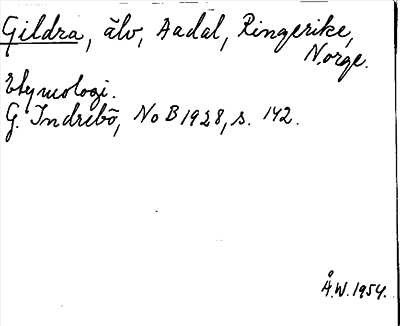 Gildra, älv, Aadal, Ringerike,
Norge.
Etymologi.
G. Indrebö, No B 1928, s. 142.
Å.W. 1954.